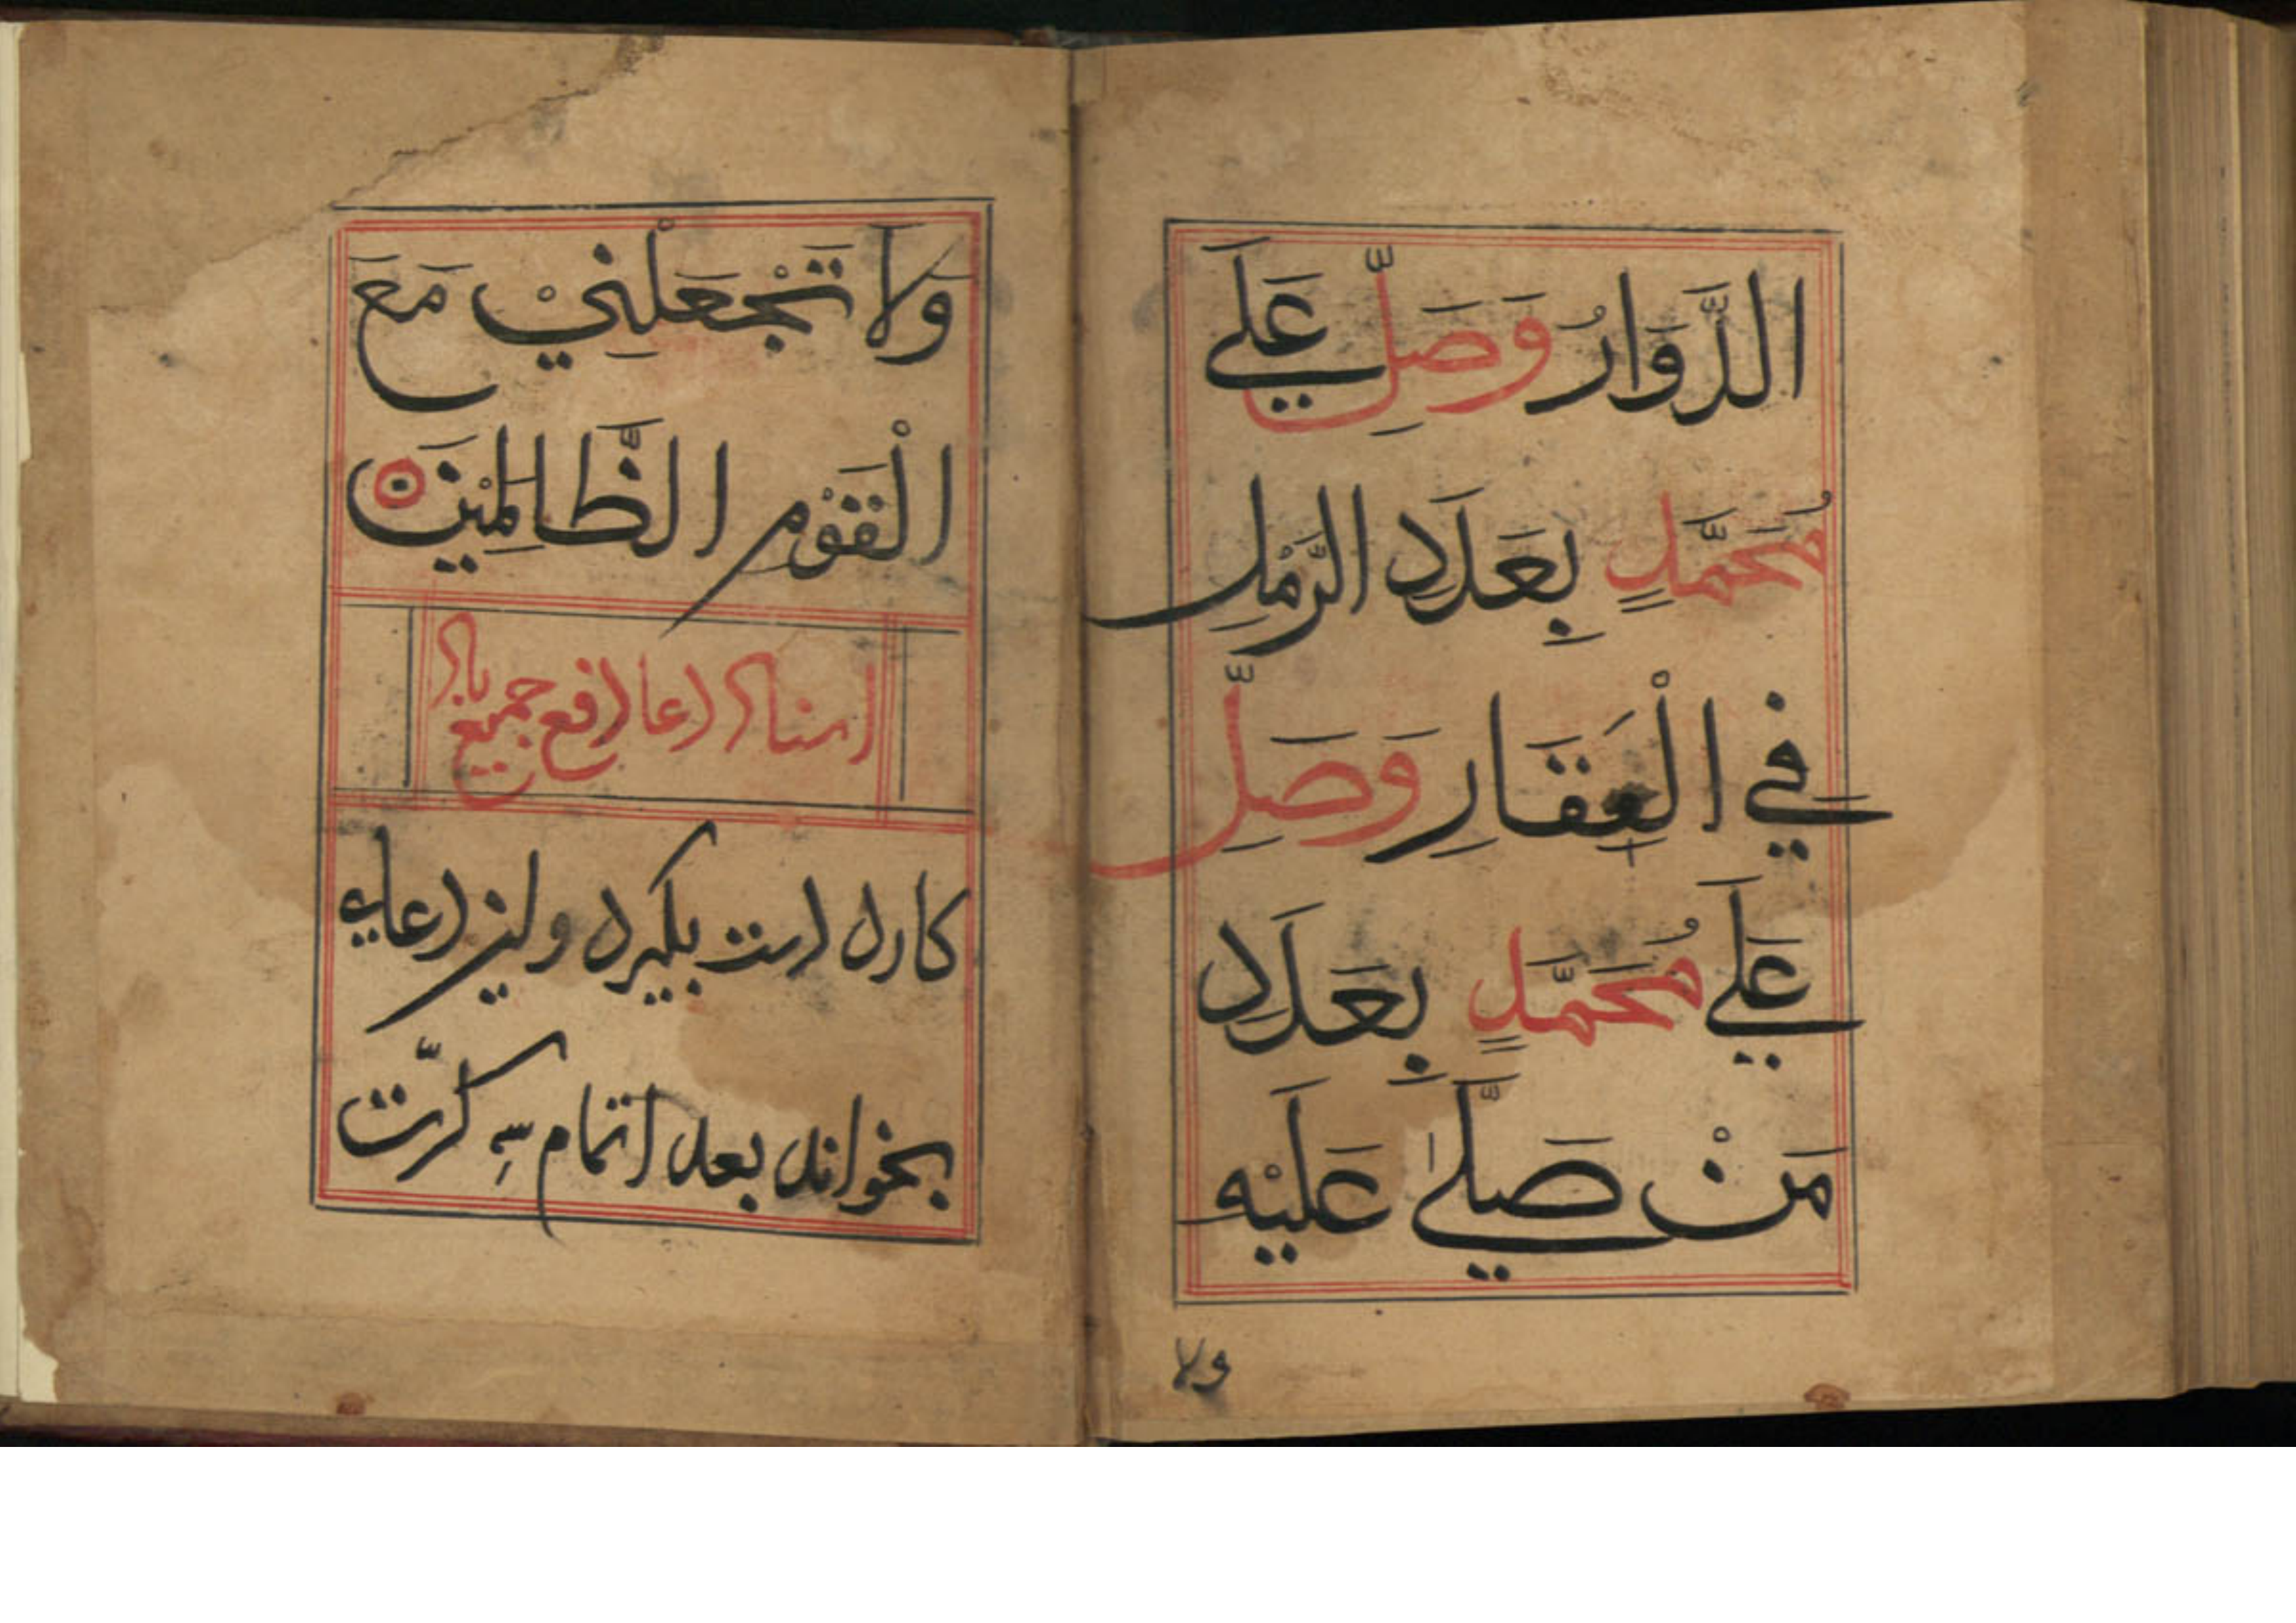 الدَّوَارُ وَصَلِّ عَلَي
مُحَمَّدٍ بِعَدَدِ الرَّمْلِ
فِي الْعِقَارِ وَصَلِّ
عَلَي مُحَمَّدٍ بِعَدَدِ
مَنْ صَلَّي عَلَيْه
ولا
وَلَا تَجْعَلْنِيْ مَعَ
الْقَوْمِ الظَّالِمِيْنَ
اسناد دعا دفع جميع
كارد دست بكيرد و اين دعا
بخواند بعد اتمام سه كرّت